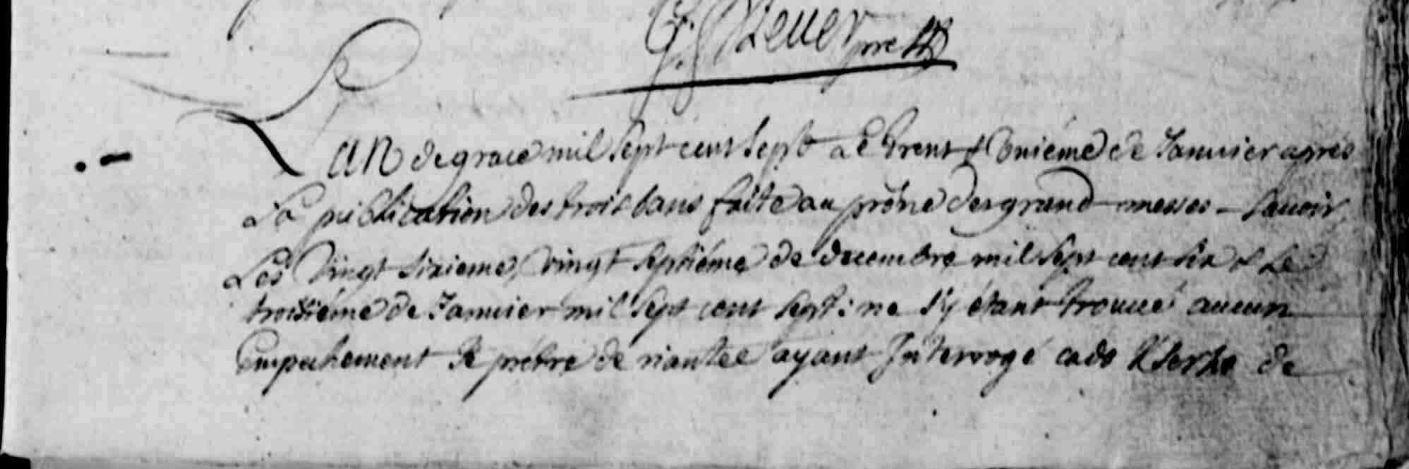 pre
L'an de grace mil sept cent sept Le trent & vniéme de Januier aprés
La publication des trois bans faite au prône des grand messes - sauoir
Les vingt sixieme, vingt septiéme de decembre mil sept cent six & Le
troisiéme de Januier mil sept cent sept : ne s'y étant trouué aucun
Empechement Je prêtre de riantec ayant Interrogé cado de